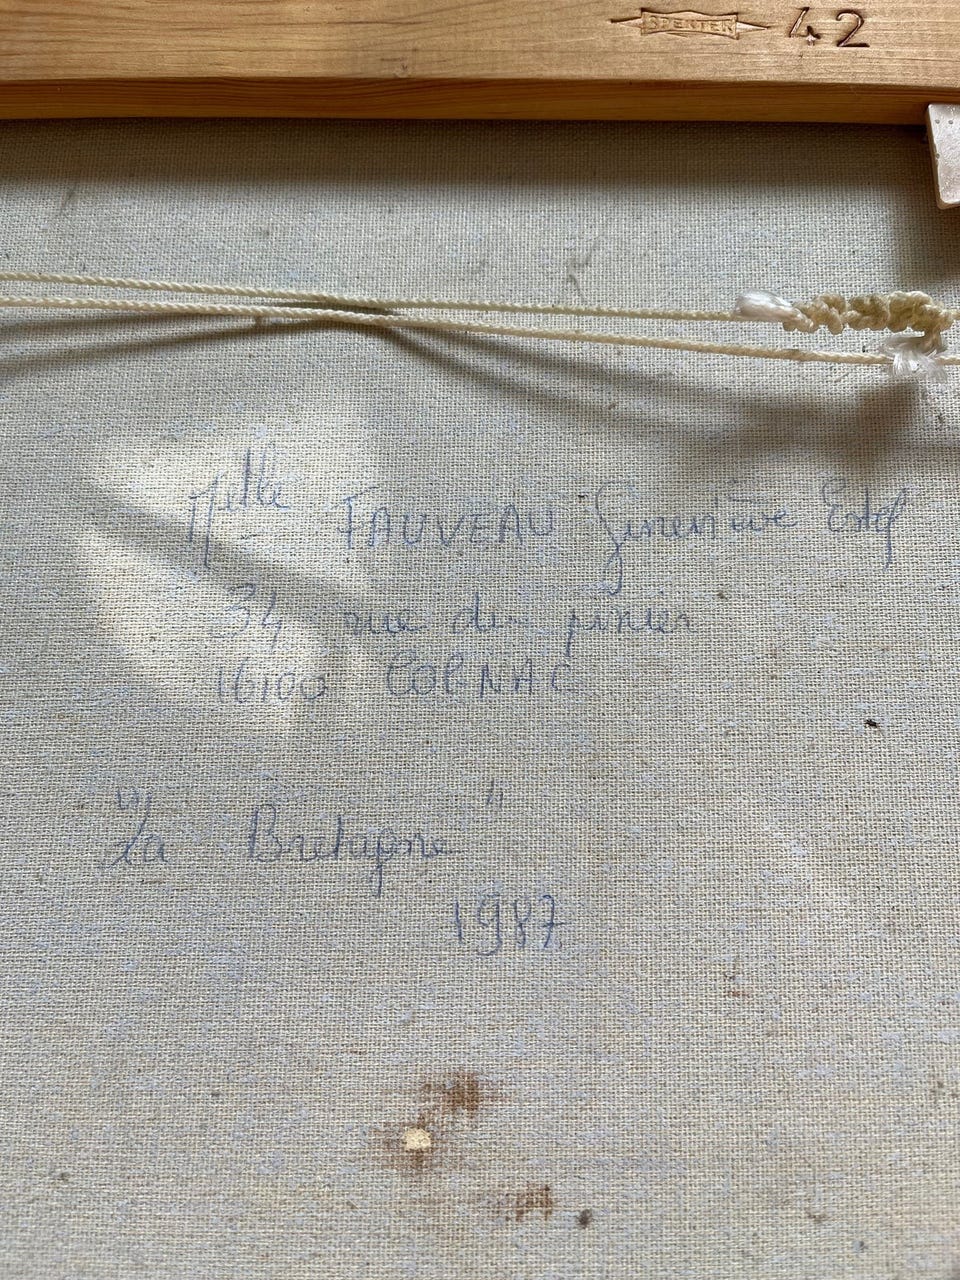 42
Melle FAUVEAU Geneviève
34 rue du pinier
16100 COGNAC
"La Bretagne"
1987